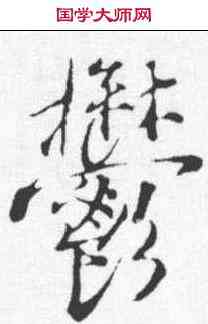 国学大师网
鬱